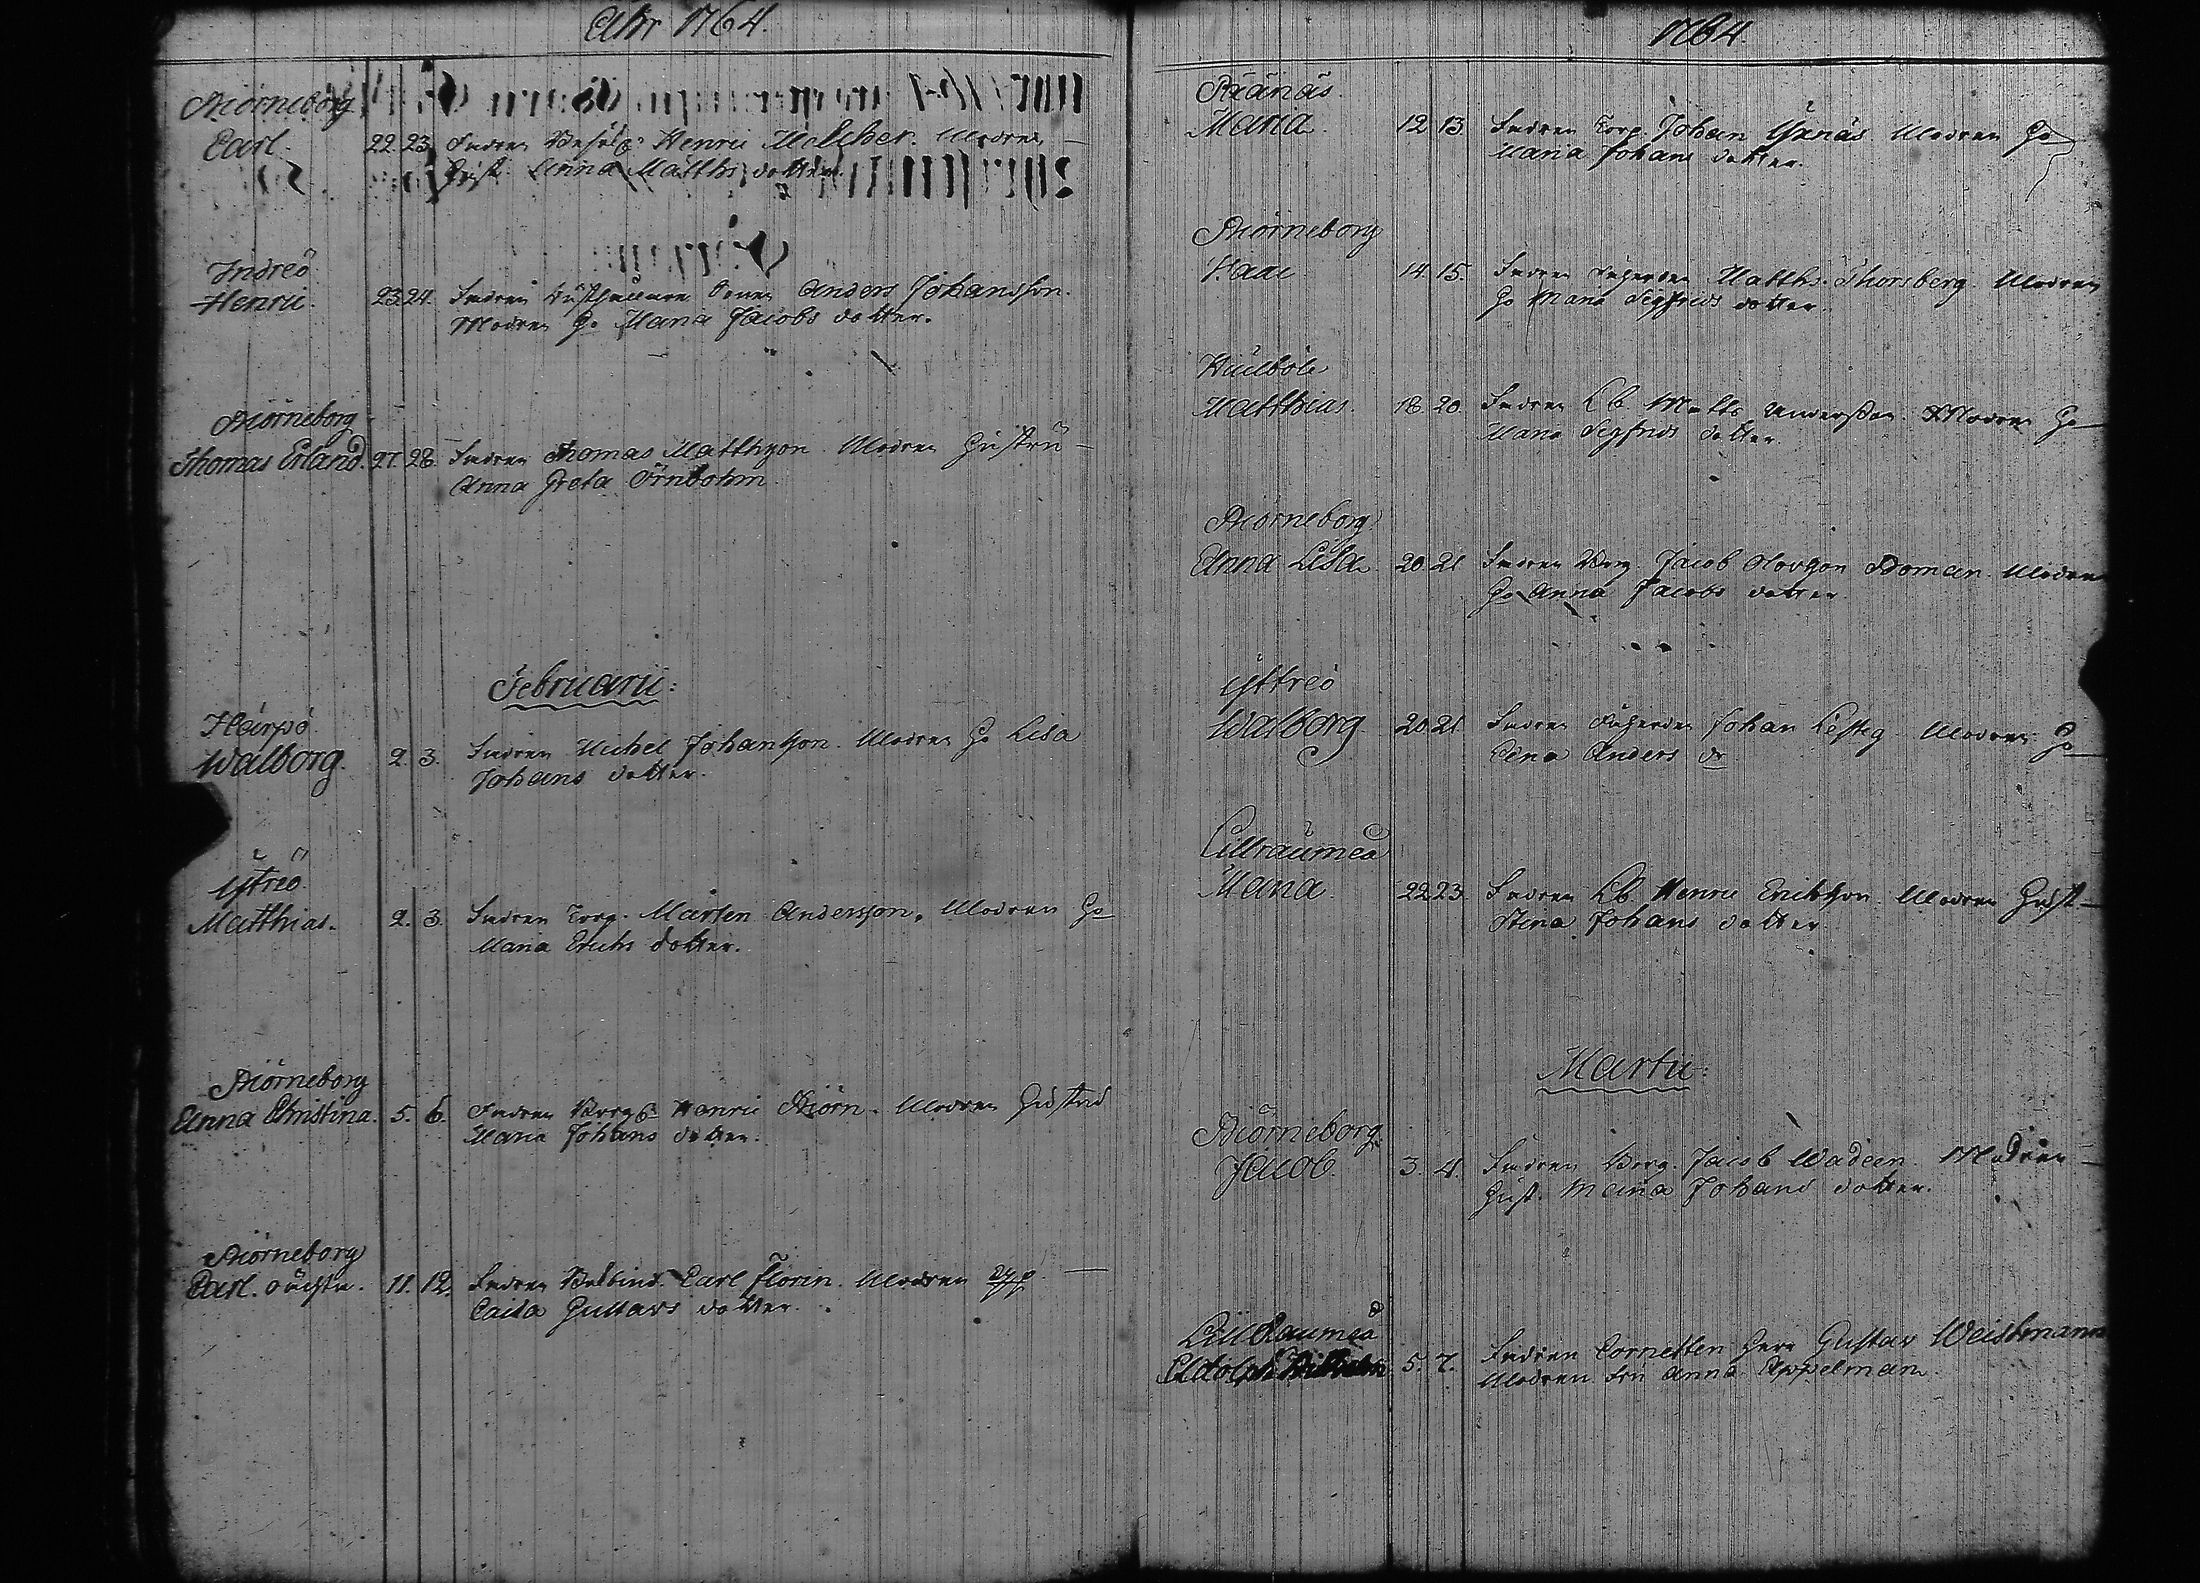 Ahr 1764.
Biörneborg
Carl. 22. 23. Fadren Henric Melcher. Modren
Hust. Anna Matths dotter.
Indreö
Henric. 23. 24. Fadren Anders Johansson.
Modren H. Maria Jacobs dotter.
Biörneborg
Thomas Erland. 27. 28. Fadren Thomas Matthson. Modren Hustru
Anna Greta Örnbohm.
Februarii:
Heinjo
Walborg. 2. 3. Fadren Michel Johansson. Modren H. Lisa
Johans dotter.
Ytreö
Matthias. 2. 3. Fadren Torp. Mårten Andersson. Modren H.
Maria Erichs dotter.
Biörneborg
Anna Christina. 5. 6. Fadren Borg. Henric Biörn. Modren Hustru
Maria Johans dotter.
Biörneborg
Carl. oächta. 11. 12. Fadren Carl Florin. Modren
Caisa Gustavs dotter.
1764.
Räänäs
Maria. 12 13. Fadren Torp. Johan Yxnäs Modren H.
Maria Johans dotter.
Biörneborg
14. 15. Fadren Matths. Thorsberg. Modren
H. Maria Segfrids dotter.
Matthias. 18. 20. Fadren Lb. Matts Andersson Modren H.
Maria Segfrids dotter.
Biörneborg
Anna Lisa 20 21 Fadren Borg. Jacob Boman Modren
H. Anna Jacobs dotter
Yttreö
Walborg. 20. 21. Fadren Johan Modren H.
Lena Anders dr
Lillraumea
Maria. 22 23. Fadren Lb. Henric Ericksson. Modren Hust.
Stina Johans dotter.
Martii:
Biörneborg.
Jacob. 3. 4. Fadren Borg. Jacob Wadeen. Modren
Hust. Maria Johans dotter.
Lillraumea
Adolph 5. 7. Fadren Cornetten Herr Gustav Weidhmann
Modren Fru Anna Appelman.